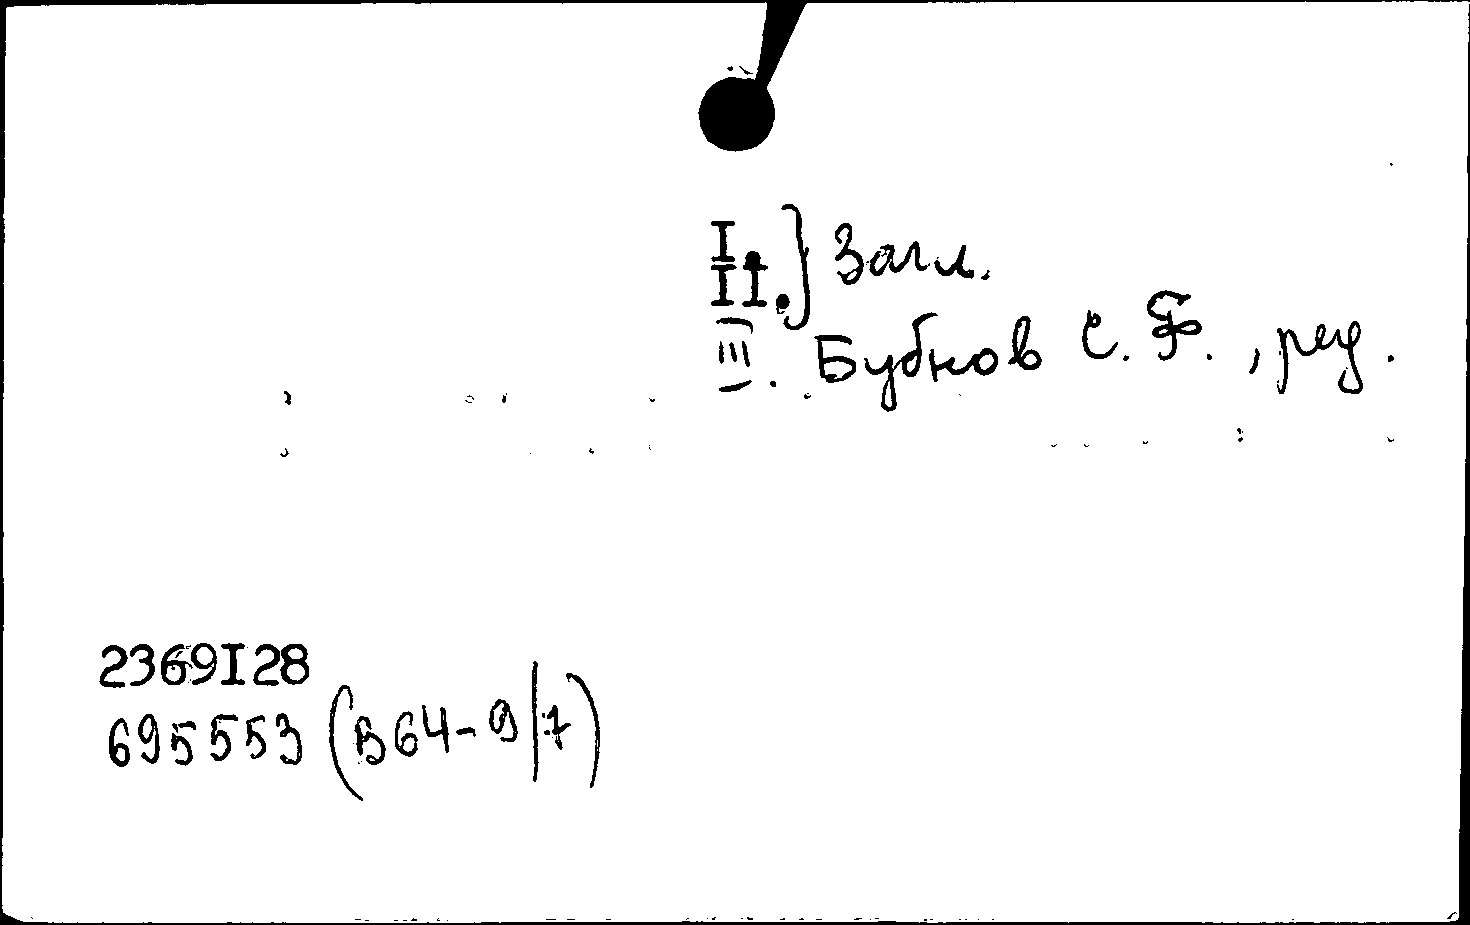 I.
II. } Загл.
III. Бубнов С. Ф., ред.
2369I28
695553 (В64-9/7)